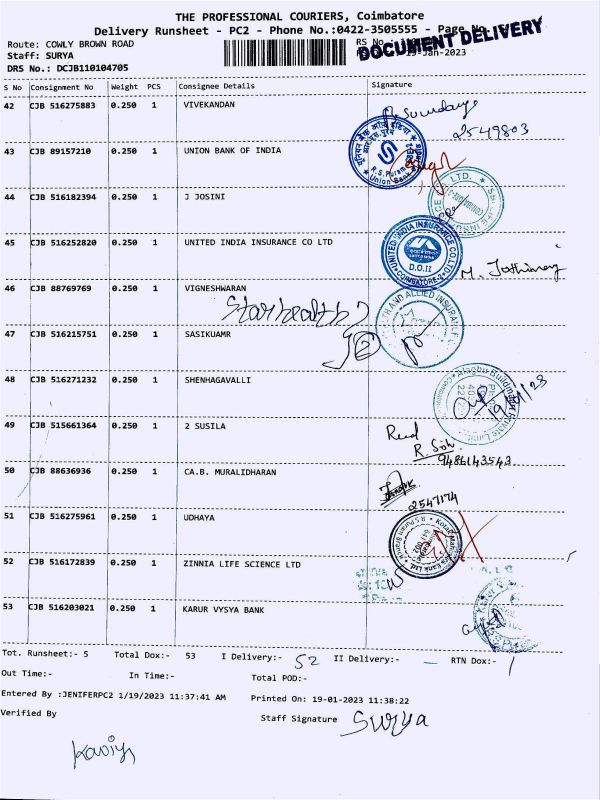 THE PROFESSIONAL COURIERS, Coimbatore
Delivery Runsheet - PC2 - Phone No.:0422-3505555 - Page No.
Route: COWLY BROWN ROAD
Staff: SURYA
DRS No.: DCJB110104705
RS No.
19-Jan-2023
DOCUMENT DELIVERY
S No Consignment No Weight PCS Consignee Details Signature
42 CJB 516275883 0.250 1 VIVEKANDAN
2549803
43 CJB 89157210 0.250 1 UNION BANK OF INDIA
R.S.Puram
Union Bank
44 CJB 516182394 0.250 1 J JOSINI
45 CJB 516252820 0.250 1 UNITED INDIA INSURANCE CO LTD
UNITED INDIA INSURANCE CO. LTD.
D.O.II
COIMBATORE
46 CJB 88769769 0.250 1 VIGNESHWARAN
Starhealth
AND ALLIED INSURANCE
47 CJB 516215751 0.250 1 SASIKUAMR
2
48 CJB 516271232 0.250 1 SHENHAGAVALLI
49 CJB 515661364 0.250 1 2 SUSILA
9486143543
50 CJB 88636936 0.250 1 CA.B. MURALIDHARAN
2547174
51 CJB 516275961 0.250 1 UDHAYA
52 CJB 516172839 0.250 1 ZINNIA LIFE SCIENCE LTD
53 CJB 516203021 0.250 1 KARUR VYSYA BANK
Tot. Runsheet:- 5 Total Dox:- 53 I Delivery:- 52 II Delivery:- — RTN Dox:- 1
Out Time:- In Time:- Total POD:-
Entered By :JENIFERPC2 1/19/2023 11:37:41 AM Printed On: 19-01-2023 11:38:22
Verified By Staff Signature Surya